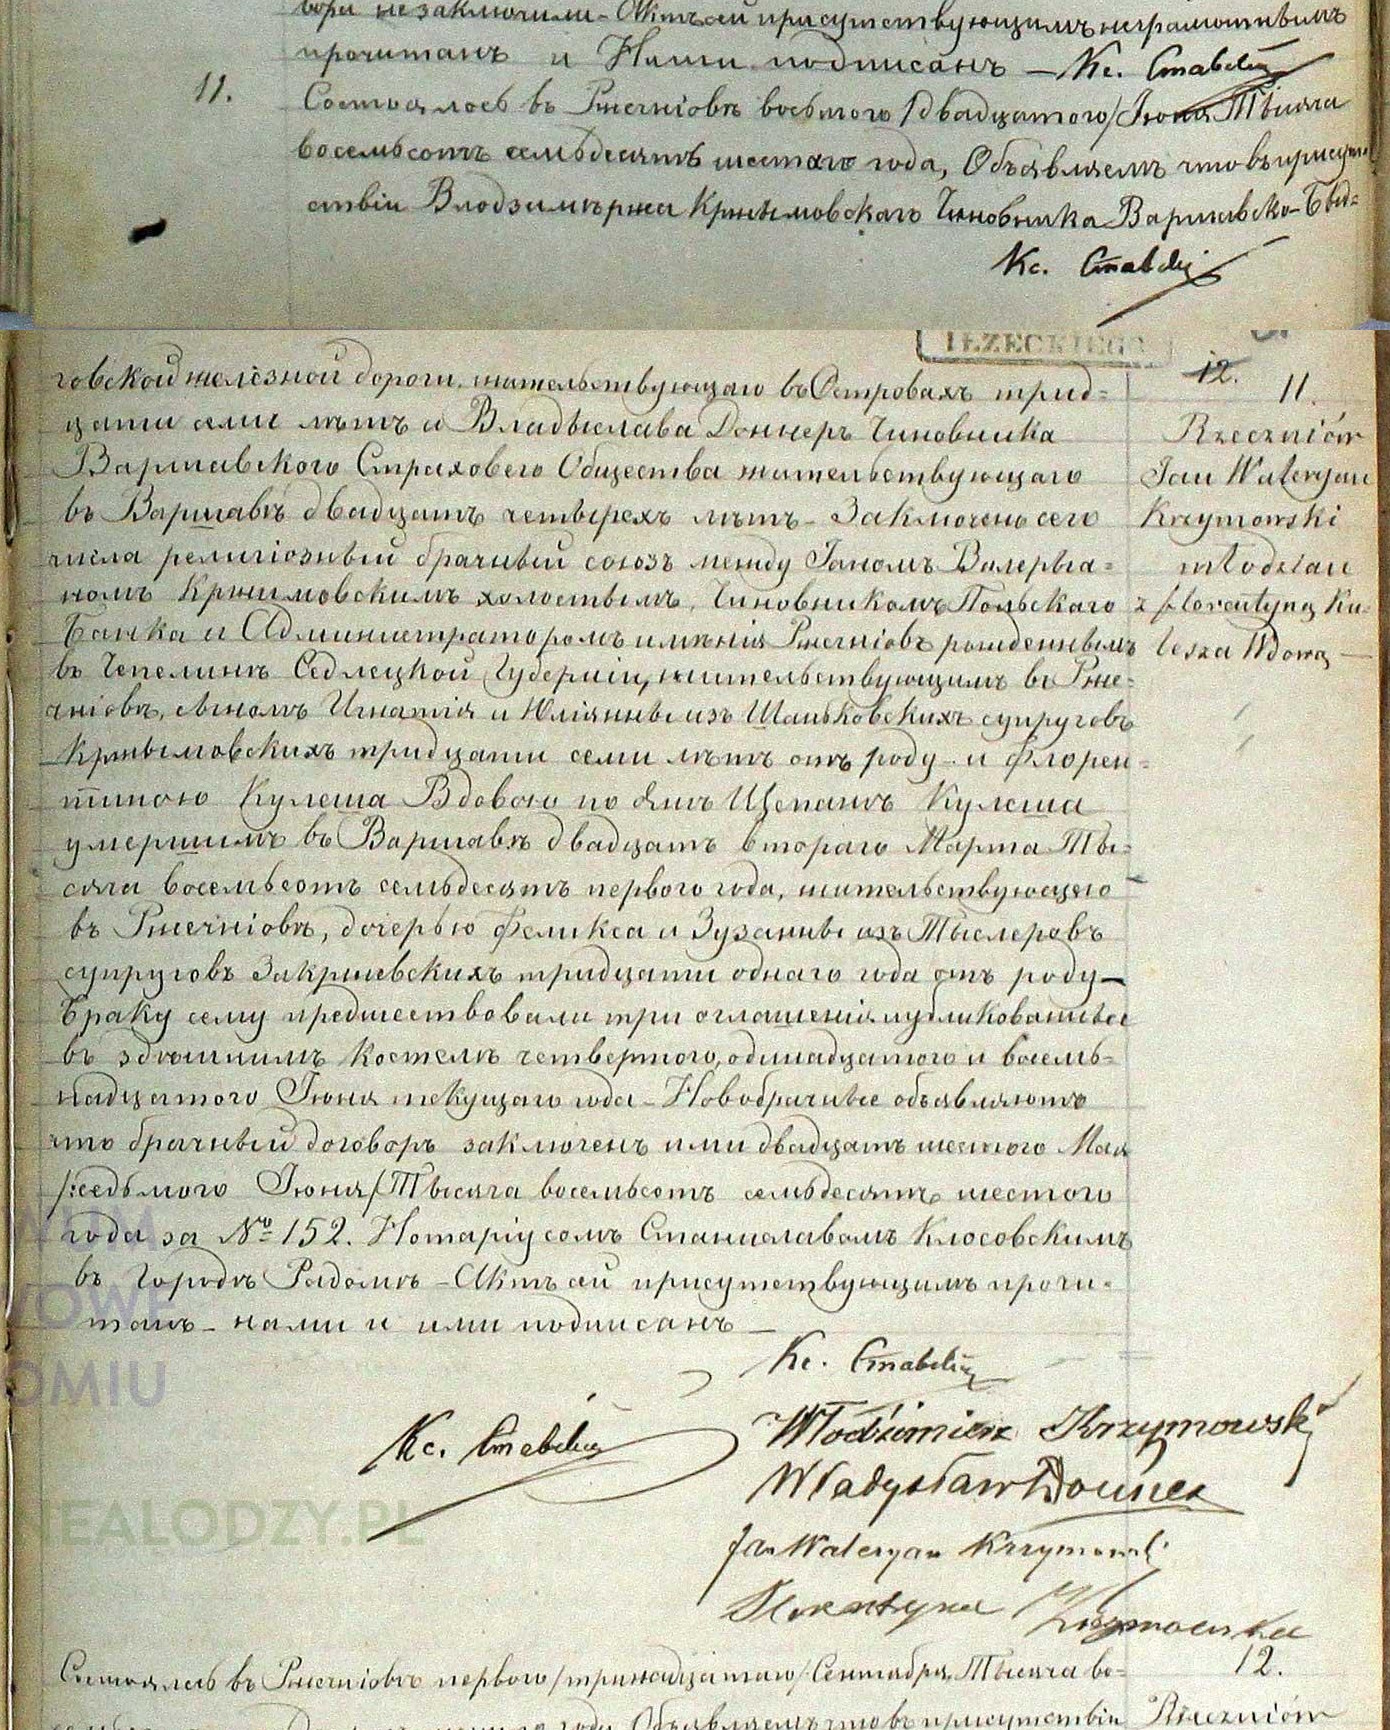 вора незаключили - Актъ сей присутствующимъ неграмотнымъ
прочитанъ и Нами подписанъ — Кс. Ставскій
11.
Состоялось въ Ржечніовѣ восьмого /двадцатого/ Іюня Тысяча
восемьсотъ семьдесятъ шестаго года, Объявляемъ что въ присут-
ствіи Влодзимѣржа Кржымовскаго Чиновника Варшавско-Быд-
Кс.
IŁŻECKIEGO
говской желѣзной дороги, жительствующаго въ Островахъ трид=
цати семи лѣтъ и Владыслава Доннеръ Чиновника
Варшавского Страхового Общества жительствующаго
въ Варшавѣ двадцать четырехъ лѣтъ - Заключенъ сего
числа религіозный брачный союзъ между Іаномъ Валерыа=
номъ Кржимовскимъ холостымъ, Чиновникомъ Польскаго
Банка и Администраторомъ имѣнія Ржечніовъ рожденнымъ
въ Чепелинѣ Седлецкой Губерніи, жительствующимъ въ Рже=
чніовѣ, сыномъ Игнатія и Юліянны изъ Шаньковскихъ супруговъ
Кржымовскихъ тридцати семи лѣтъ отъ роду - и Флорен=
тиною Кулеша Вдовою по Щепанѣ Кулеша
умершимъ въ Варшавѣ двадцать второго Марта Ты=
сяча восемьсотъ семьдесятъ первого года, жительствующего
въ Ржечніовѣ, дочерью Феликса и Зузанны изъ Тыслеровъ
супруговъ Закржевскихъ тридцати одного года отъ роду —
Браку сему предшествовали три оглашенія публикованные
въ здѣшнимъ костелѣ четвертого, одинадцатого и восемь=
надцатого Іюня текущаго года - Новобрачные объявляютъ
что брачный договоръ заключенъ ими двадцать шестого Мая
/седьмого Іюня/ Тысяча восемьсотъ семьдесятъ шестого
года за № 152. Нотаріусомъ Станиславомъ Клосовскимъ
въ Городѣ Радомѣ - Актъ сей присутствующимъ прочи=
танъ - нами и ими подписанъ —
12. 11.
Rzeczniów
Jan Waleryan
Krzymowski
młodzian
z Florentyną Ku-
lesza Wdową —
Кс. Ставскій
Кс. Ставскій
Włodzimierz Krzymowski
Władysław Donner
Jan Waleryan Krzymowski
Florentyna Krzymowska
NEALODZY.PL
Состоялось въ Ржечніовѣ первого /тринадцатаго/ Сентября Тысяча во=
12.
года Объявляемъ что въ присутствіи
Rzeczniów